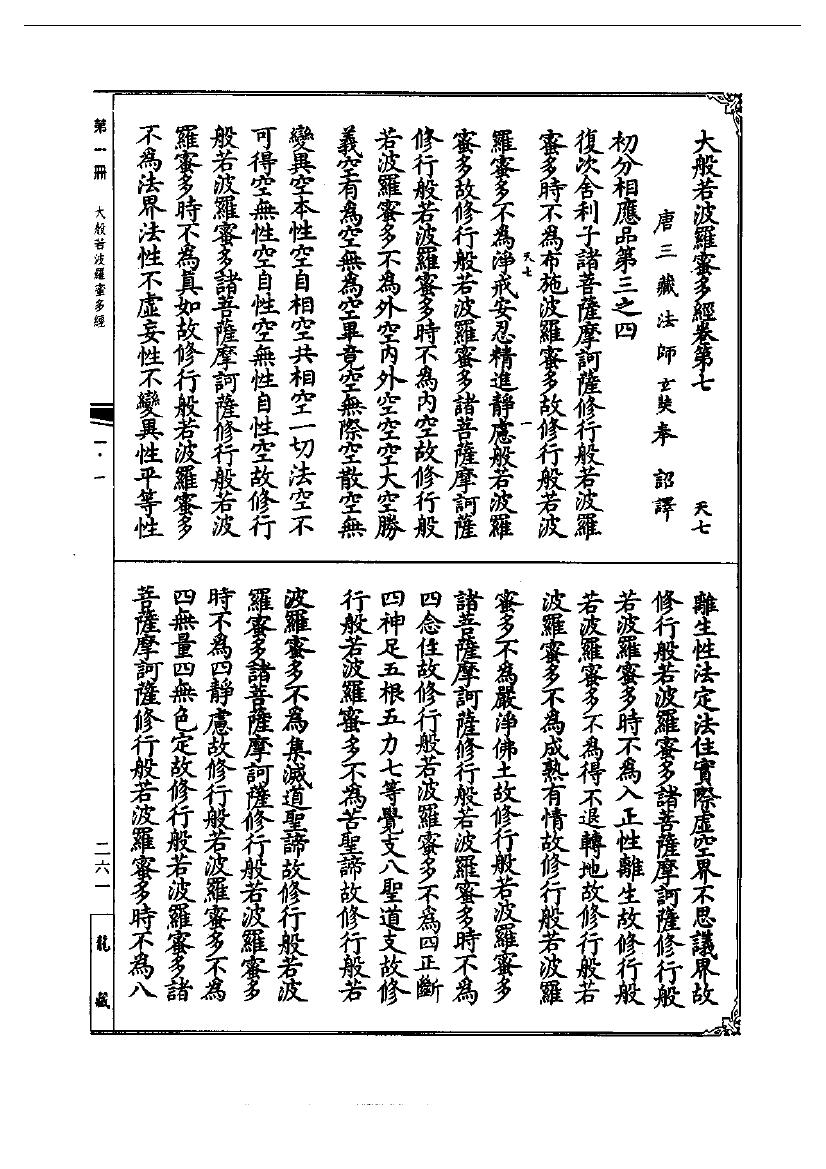 大般若波羅蜜多經卷第七 天七
唐三藏法師玄奘奉 詔譯
初分相應品第三之四
復次舍利子諸菩薩摩訶薩修行般若波羅
蜜多時不為布施波羅蜜多故修行般若波
天七 一
羅蜜多不為淨戒安忍精進靜慮般若波羅
蜜多故修行般若波羅蜜多諸菩薩摩訶薩
修行般若波羅蜜多時不為內空故修行般
若波羅蜜多不為外空內外空空空大空勝
義空有為空無為空畢竟空無際空散空無
變異空本性空自相空共相空一切法空不
可得空無性空自性空無性自性空故修行
般若波羅蜜多諸菩薩摩訶薩修行般若波
羅蜜多時不為真如故修行般若波羅蜜多
不為法界法性不虛妄性不變異性平等性
離生性法定法住實際虛空界不思議界故
修行般若波羅蜜多諸菩薩摩訶薩修行般
若波羅蜜多時不為入正性離生故修行般
若波羅蜜多不為得不退轉地故修行般若
波羅蜜多不為成熟有情故修行般若波羅
蜜多不為嚴淨佛土故修行般若波羅蜜多
諸菩薩摩訶薩修行般若波羅蜜多時不為
四念住故修行般若波羅蜜多不為四正斷
四神足五根五力七等覺支八聖道支故修
行般若波羅蜜多不為苦聖諦故修行般若
波羅蜜多不為集滅道聖諦故修行般若波
羅蜜多諸菩薩摩訶薩修行般若波羅蜜多
時不為四靜慮故修行般若波羅蜜多不為
四無量四無色定故修行般若波羅蜜多諸
菩薩摩訶薩修行般若波羅蜜多時不為八
第一冊 大般若波羅蜜多經
一·一
二六一
龍藏